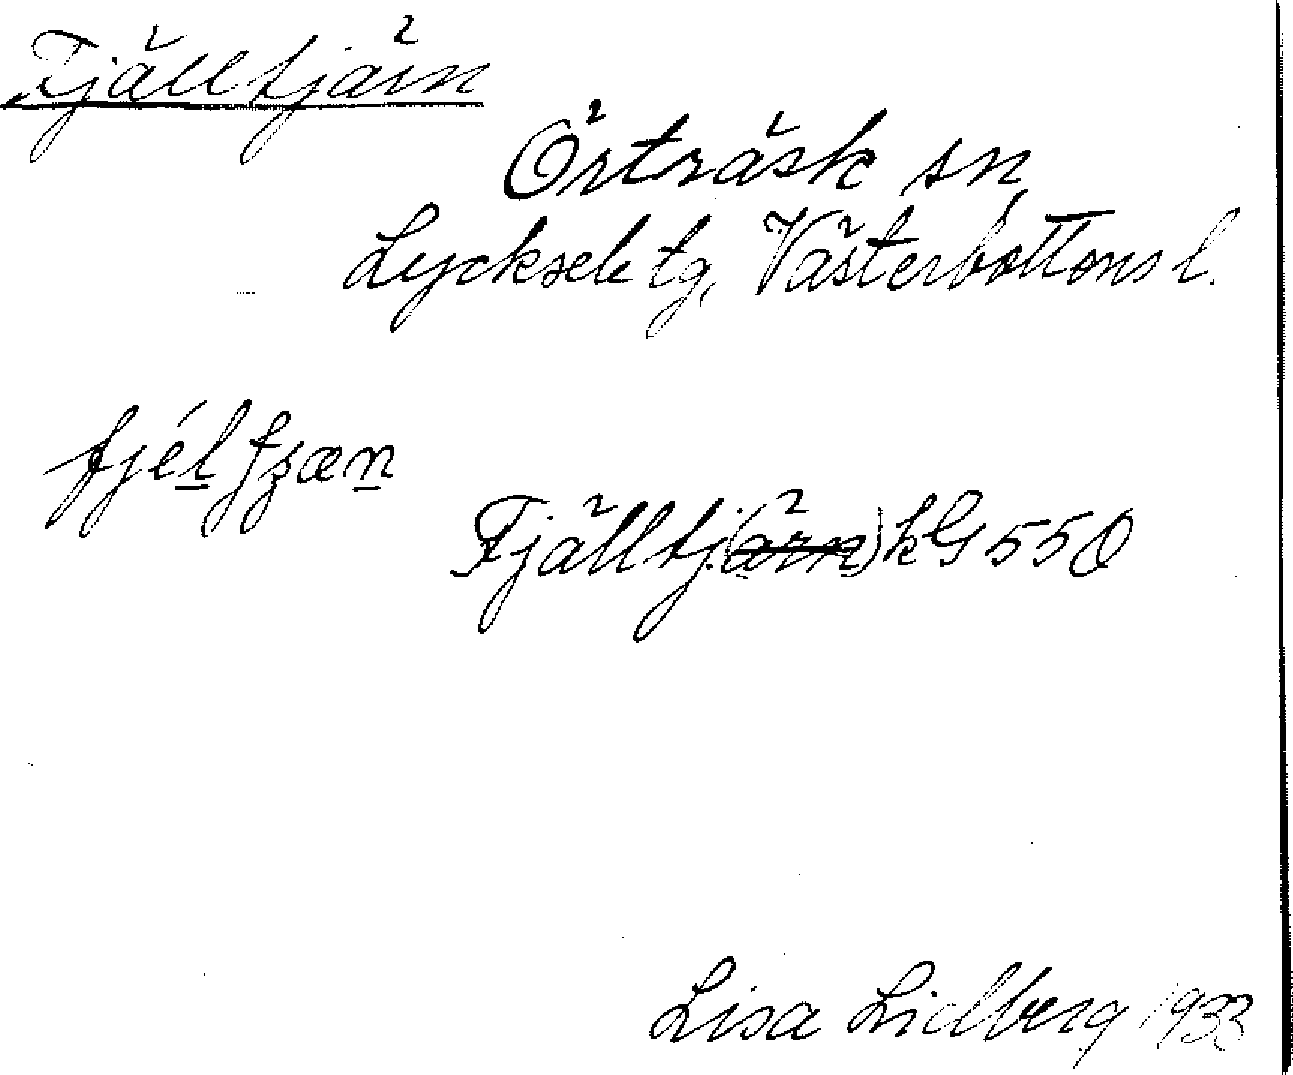 Fjälltjärn
Örträsk sn
Lycksele tg, Västerbottens l.
fjél
Fjälltj(ärn) kG 550
Lisa Lidberg 1933